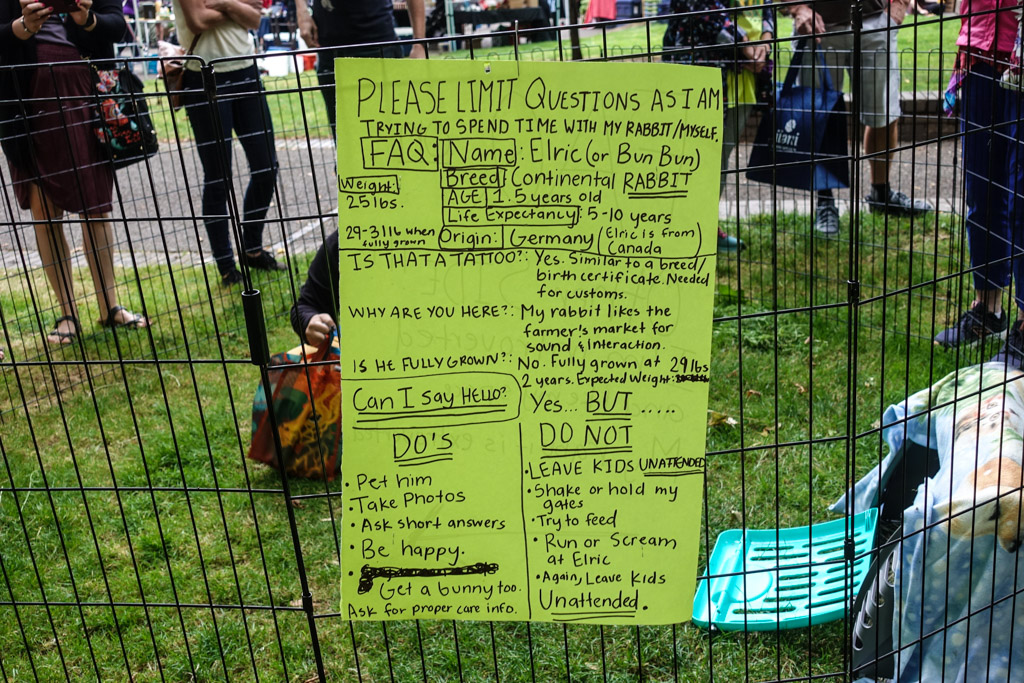 PLEASE LIMIT QUESTIONS AS I AM
TRYING TO SPEND TIME WITH MY RABBIT/MYSELF.
FAQ: Name: Elric (or Bun Bun)
Weight: 25lbs.
Breed: Continental RABBIT
AGE 1.5 years old
Life Expectancy: 5-10 years
29-31 lb when fully grown
Origin: Germany (Elric is from Canada)
IS THAT A TATTOO?: Yes. Similar to a breed/
birth certificate. Needed
for customs.
WHY ARE YOU HERE?: My rabbit likes the
farmer's market for
sound & interaction.
IS HE FULLY GROWN?: No. Fully grown at
2 years. Expected Weight: 29 lbs
Can I say HELLO? Yes... BUT .....
DO'S
• Pet him
• Take Photos
• Ask short answers
• Be happy.
• Get a bunny too.
Ask for proper care info.
DO NOT
• LEAVE KIDS UNATTENDED
• Shake or hold my
gates
• Try to feed
• Run or Scream
at Elric
• Again, Leave Kids
Unattended.